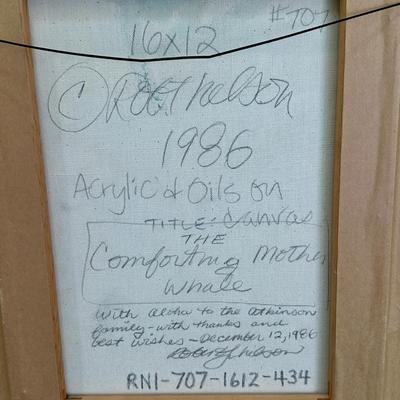 #707
16x12
© Rob't Nelson
1986
Acrylic & Oils on
Canvas
TITLE:
THE
Comforting Mother
Whale
With aloha to the Atkinson
family - with thanks and
best wishes - December 12, 1986
RN1-707-1612-434